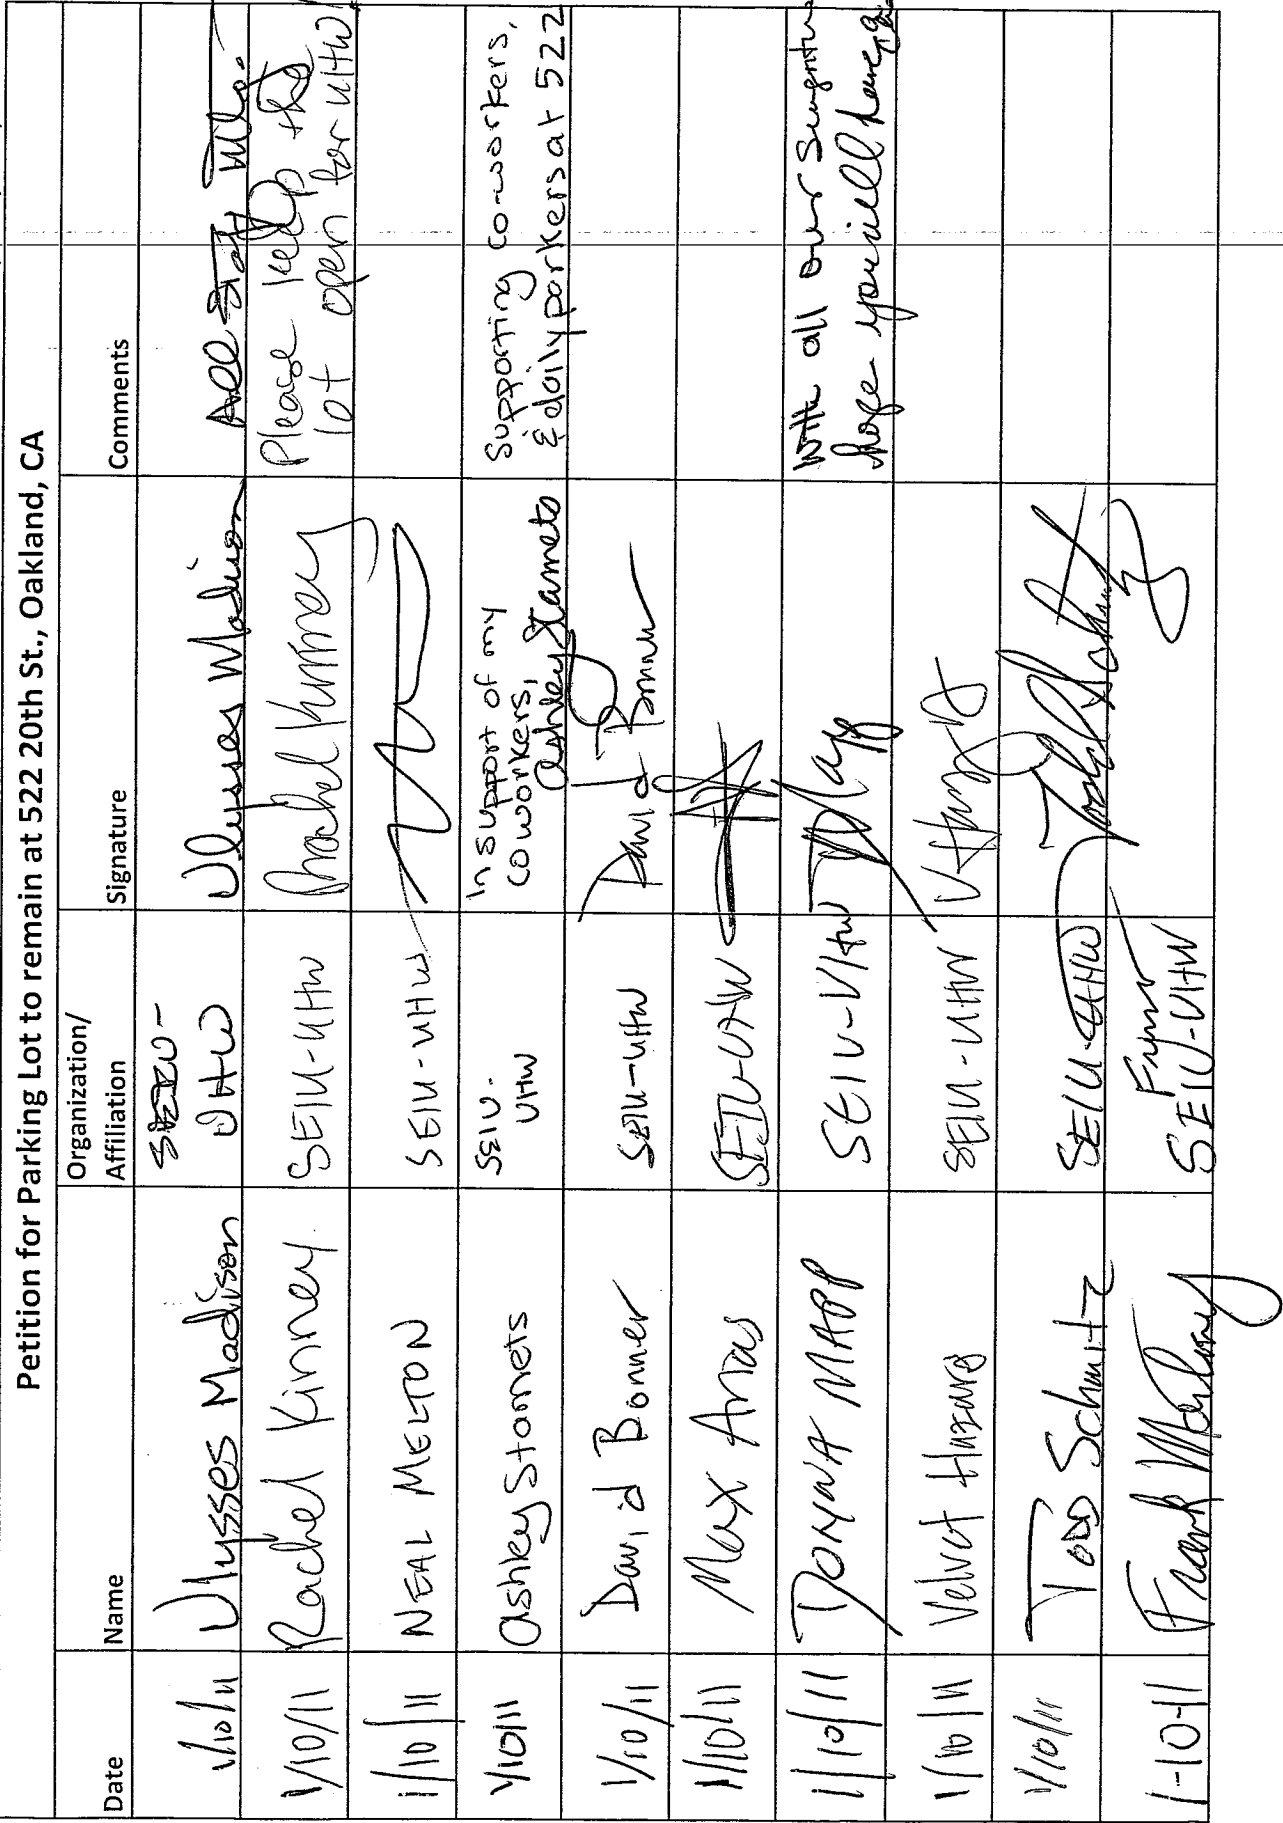 Petition for Parking Lot to remain at 522 20th St., Oakland, CA
Date Name Organization/ Affiliation Signature Comments
1/10/11 Ulysses Madison SEIU- UHW Ulysses Madison
1/10/11 Rachel Kinney SEIU-UHW Rachel Kinney Please keep the
lot open for UHW!
1/10/11 NEAL MELTON SEIU-UHW
1/10/11 Ashley Stamets SEIU- UHW In support of my
coworkers, Ashley Stamets
Supporting co-workers,
& daily parkers at 522
1/10/11 David Bonner SEIU-UHW David Bonner
1/10/11 Max Arias SEIU-UHW
1/10/11 DONNA MAPP SEIU-UHW
With all our
hope you will
1/10/11 Velvet Hazard SEIU-UHW
1/10/11 Todd Schmitz SEIU-UHW
1-10-11 Frank SEIU-UHW